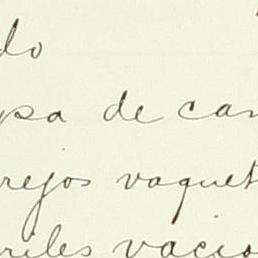 do
psa de can
rejos vaquet
rriles vacio